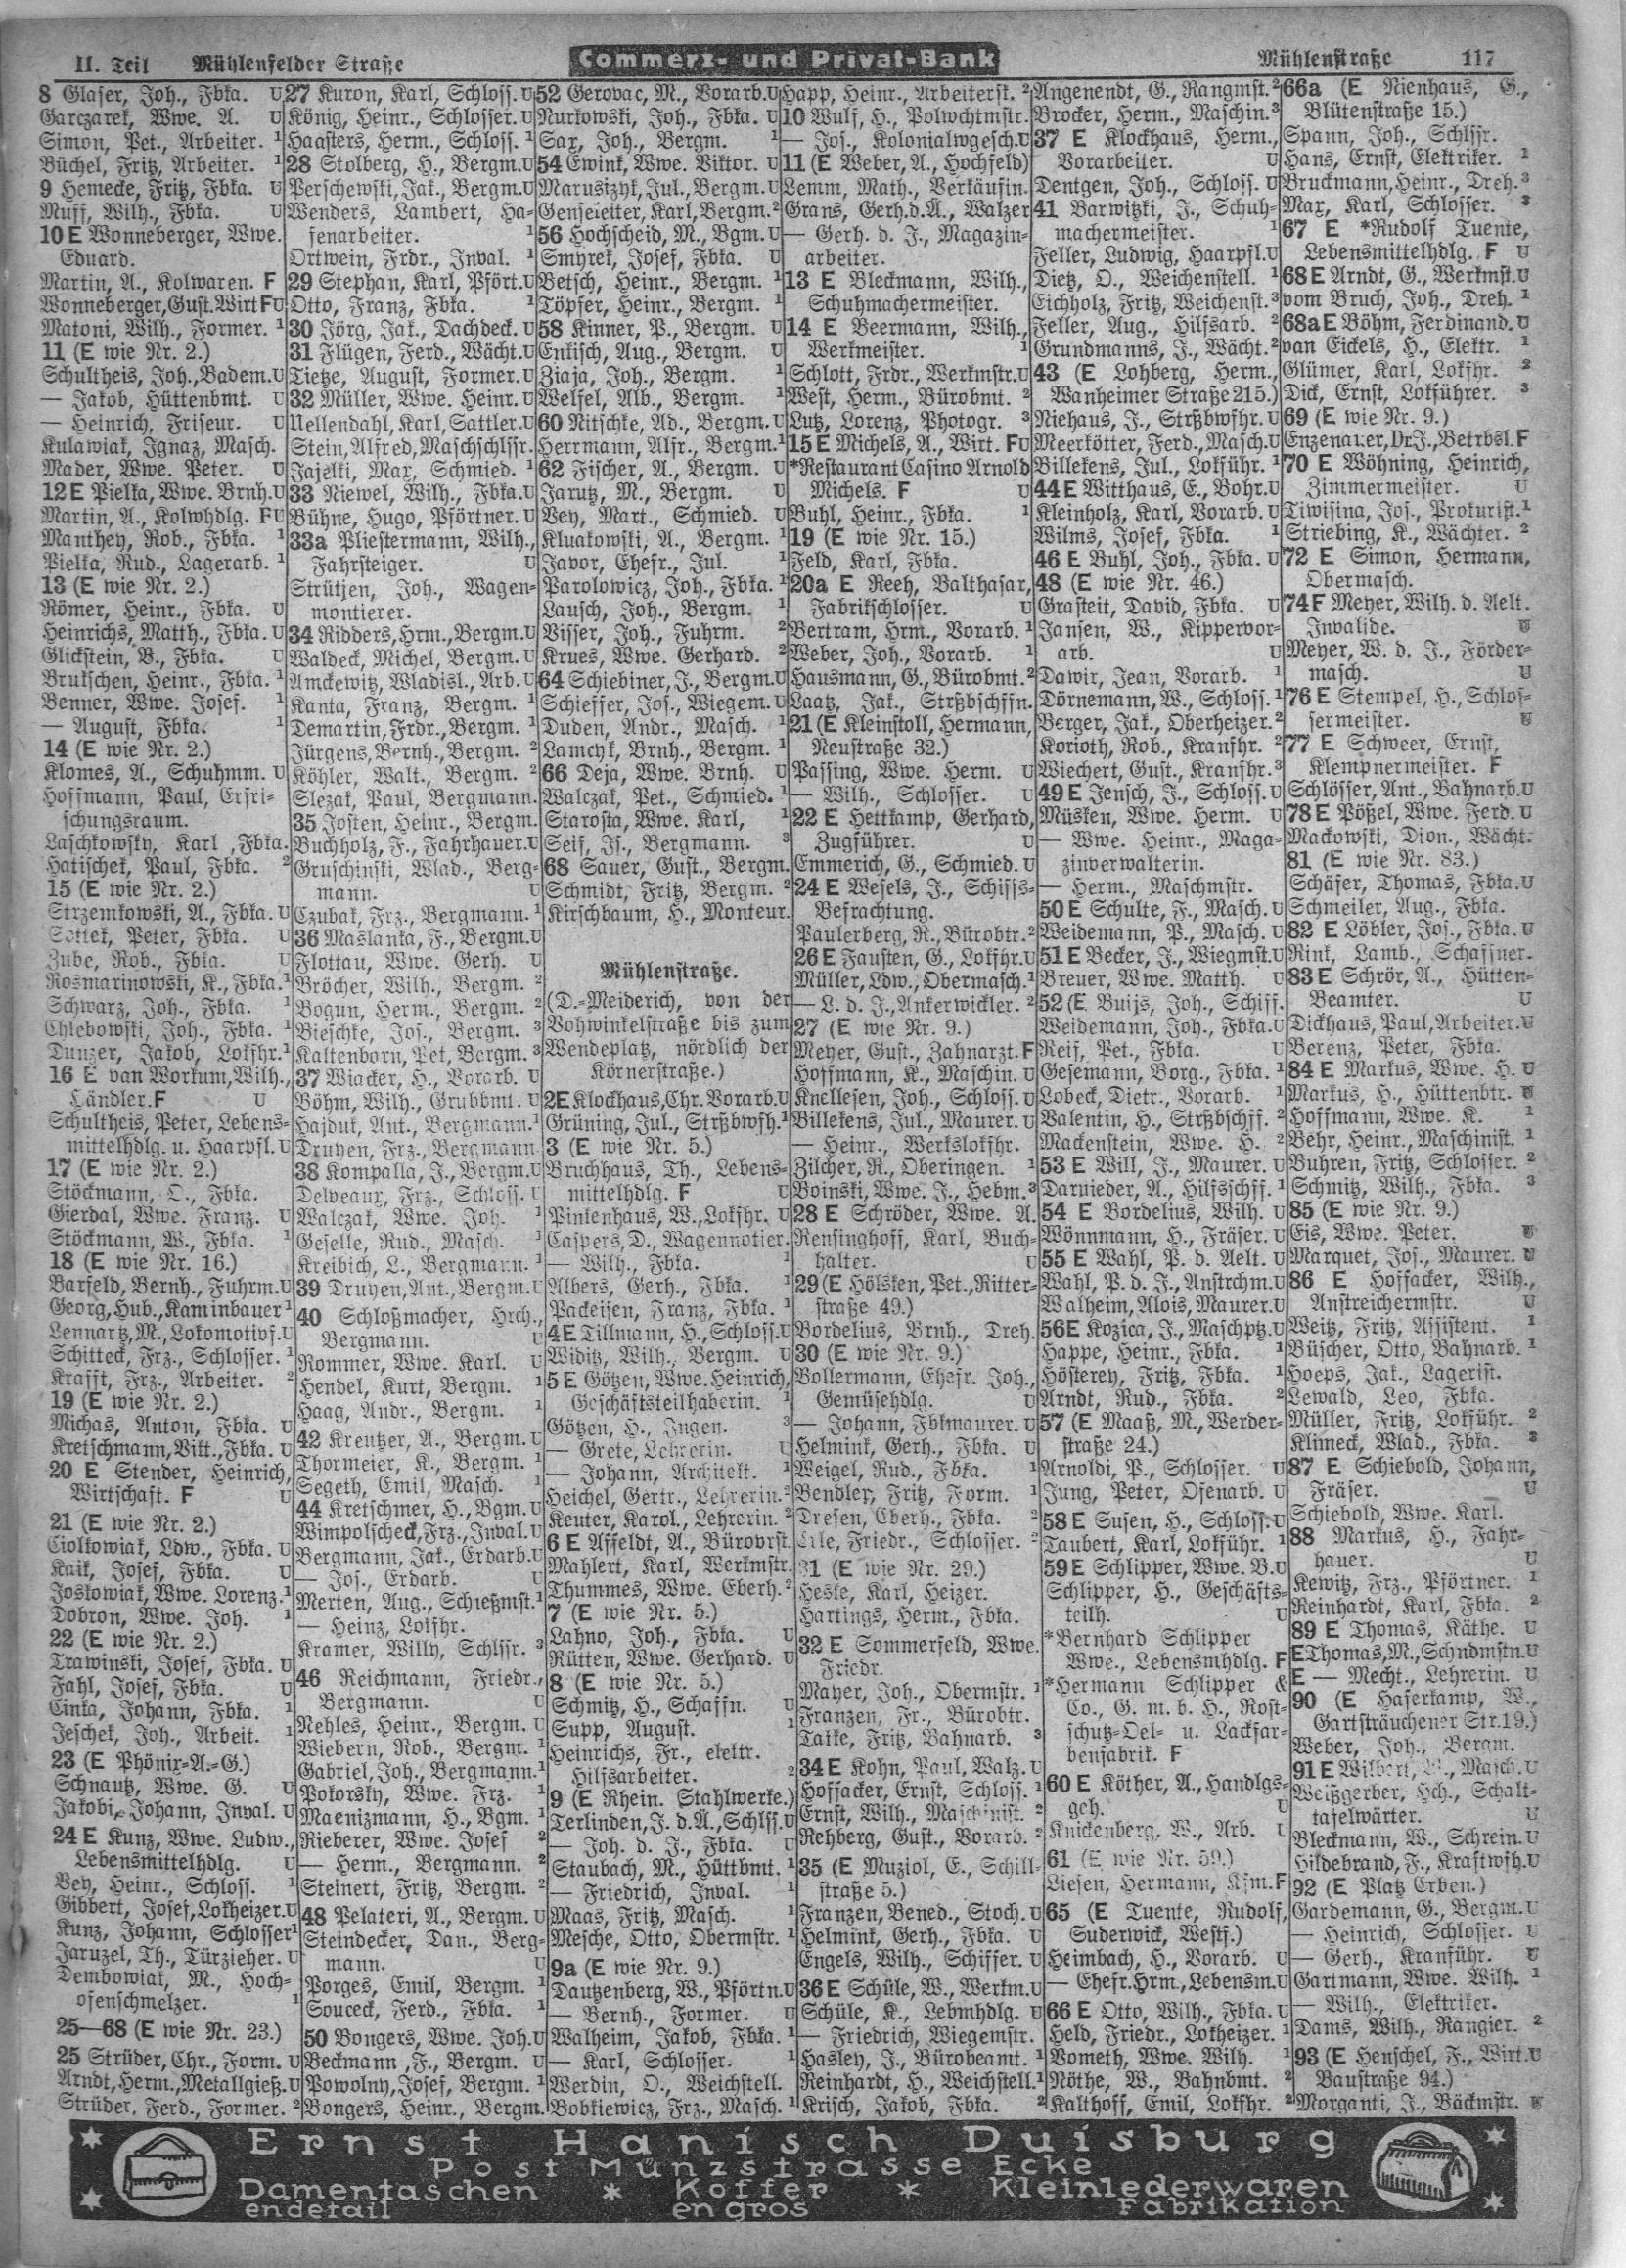 II. Teil Mühlenfelder Straße
Commerz- und Privat-Bank
Mühlenstraße 117
8 Glaser, Joh., Fbka. U
Garczarek, Wwe. A. U
Simon, Pet., Arbeiter. 1
Büchel, Fritz, Arbeiter. 1
9 Hemecke, Fritz, Fbka. U
Muff, Wilh., Fbka. U
10 E Wonneberger, Wwe.
Eduard.
Martin, A., Kolwaren. F
Wonneberger, Gust. Wirt F U
Matoni, Wilh., Former. 1
11 (E wie Nr. 2.)
Schultheis, Joh., Badem. U
— Jakob, Hüttenbmt. U
— Heinrich, Friseur. U
Kulawiak, Ignaz, Masch.
Mader, Wwe. Peter. U
12 E Pielka, Wwe. Brnh. U
Martin, A., Kolwhdlg. F U
Manthey, Rob., Fbka. 1
Pielka, Rud., Lagerarb. 1
13 (E wie Nr. 2.)
Römer, Heinr., Fbka. U
Heinrichs, Matth., Fbka. U
Glickstein, B., Fbka. U
Brukschen, Heinr., Fbka. 1
Benner, Wwe. Josef. 1
— August, Fbka. 1
14 (E wie Nr. 2.)
Klomes, A., Schuhmm. U
Hoffmann, Paul, Erfri-
schungsraum.
Laschkowsky, Karl, Fbka.
Hatischek, Paul, Fbka. 2
15 (E wie Nr. 2.)
Strzemkowski, A., Fbka. U
Peter, Fbka. U
Zube, Rob., Fbka. U
Rosmarinowski, K., Fbka. 1
Schwarz, Joh., Fbka. 1
Chlebowski, Joh., Fbka. 1
Tunzer, Jakob, Lokfhr. 1
16 E van Workum, Wilh.,
Händler. F U
Schultheis, Peter, Lebens-
mittelhdlg. u. Haarpfl. U
17 (E wie Nr. 2.)
Stöckmann, O., Fbka.
Gierdal, Wwe. Franz. U
Stöckmann, W., Fbka. 1
18 (E wie Nr. 16.)
Barfeld, Bernh., Fuhrm. U
Georg, Hub., Kaminbauer 1
Lennartz, M., Lokomotivf. U
Schitteck, Frz., Schlosser. 1
Krafft, Frz., Arbeiter. 2
19 (E wie Nr. 2.)
Michas, Anton, Fbka. U
Kretschmann, Vikt., Fbka. U
20 E Stender, Heinrich,
Wirtschaft. F U
21 (E wie Nr. 2.)
Ciolkowiak, Ldw., Fbka. U
Kaik, Josef, Fbka. U
Joskowiak, Wwe. Lorenz. 1
Dobron, Wwe. Joh. 1
22 (E wie Nr. 2.)
Trawinski, Josef, Fbka. U
Fahl, Josef, Fbka. U
Cinka, Johann, Fbka. 1
Jeschek, Joh., Arbeit. 1
23 (E Phönix-A.-G.)
Schnautz, Wwe. G. U
Jakobi, Johann, Inval. U
24 E Kunz, Wwe. Ludw.,
Lebensmittelhdlg. U
Vey, Heinr., Schloss. 1
Gibbert, Josef, Lokheizer. U
Kunz, Johann, Schlosser 1
Jaruzel, Th., Türzieher. U
Dembowiak, M., Hoch-
ofenschmelzer. 1
25—68 (E wie Nr. 23.)
25 Strüder, Chr., Form. U
Arndt, Herm., Metallgieß. U
Strüder, Ferd., Former. 2
27 Kuron, Karl, Schloss. U
König, Heinr., Schlosser. U
Haasters, Herm., Schloss. 1
28 Stolberg, H., Bergm. U
Perschewski, Jak., Bergm. U
Wenders, Lambert, Ha-
fenarbeiter. 1
Ortwein, Frdr., Inval. 1
29 Stephan, Karl, Pfört. U
Otto, Franz, Fbka. 1
30 Jörg, Jak., Dachdeck. U
31 Flügen, Ferd., Wächt. U
Tietze, August, Former. U
32 Müller, Wwe. Heinr. U
Uellendahl, Karl, Sattler. U
Stein, Alfred, Maschschlssr.
Jajelki, Max, Schmied. 1
33 Niewel, Wilh., Fbka. U
Bühne, Hugo, Pförtner. U
33a Pliestermann, Wilh.,
Fahrsteiger. U
Strütjen, Joh., Wagen-
montierer.
34 Ridders, Hrm., Bergm. U
Waldeck, Michel, Bergm. U
Amckewitz, Wladisl., Arb. U
Kanta, Franz, Bergm. 1
Demartin, Frdr., Bergm. 1
Jürgens, Bernh., Bergm. 2
Köhler, Walt., Bergm. 2
Slezak, Paul, Bergmann.
35 Josten, Heinr., Bergm.
Buchholz, F., Fahrhauer. U
Gruschinski, Wlad., Berg-
mann. U
Czubak, Frz., Bergmann. 1
36 Maslanka, F., Bergm. U
Flottau, Wwe. Gerh. U
Bröcher, Wilh., Bergm. 2
Bogun, Herm., Bergm. 2
Bieschke, Jos., Bergm. 3
Kaltenborn, Pet., Bergm. 3
37 Wiacker, H., Vorarb. U
Böhm, Wilh., Grubbmt. U
Hajduk, Ant., Bergmann. 1
Druyen, Frz., Bergmann.
38 Kompalla, J., Bergm. U
Delveaux, Frz., Schloss. U
Walczak, Wwe. Joh. 1
Geselle, Rud., Masch. 1
Kreibich, L., Bergmann. 1
39 Druyen, Ant., Bergm. U
40 Schloßmacher, Hrch.,
Bergmann. U
Rommer, Wwe. Karl. U
Hendel, Kurt, Bergm. 1
Haag, Andr., Bergm. 1
42 Kreutzer, A., Bergm. U
Thormeier, K., Bergm. 1
Segeth, Emil, Masch. 1
44 Kretschmer, H., Bgm. U
Wimpolscheck, Frz., Inval. U
Bergmann, Jak., Erdarb. U
— Jos., Erdarb. U
Merten, Aug., Schießmst. 1
— Heinz, Lokfhr.
Kramer, Willy, Schlssr. 3
46 Reichmann, Friedr.,
Bergmann. U
Nehles, Heinr., Bergm. U
Wiebern, Rob., Bergm. 1
Gabriel, Joh., Bergmann. 1
Pokorsky, Wwe. Frz. 1
Maenizmann, H., Bgm. 1
Rieberer, Wwe. Josef 2
— Herm., Bergmann. 2
Steinert, Fritz, Bergm. 2
48 Pelateri, A., Bergm. U
Steindecker, Dan., Berg-
mann. U
Porges, Emil, Bergm. 1
Souceck, Ferd., Fbka. 1
50 Bongers, Wwe. Joh. U
Beckmann, F., Bergm. U
Powolny, Josef, Bergm. 1
Bongers, Heinr., Bergm.
52 Gerovac, M., Vorarb. U
Nurkowski, Joh., Fbka. U
Sax, Joh., Bergm. 1
54 Ewink, Wwe. Viktor. U
Marusizyk, Jul., Bergm. U
Genseleiter, Karl, Bergm. 2
56 Hochscheid, M., Bgm. U
Smyrek, Josef, Fbka. U
Betsch, Heinr., Bergm. 1
Töpfer, Heinr., Bergm. 1
58 Kinner, P., Bergm. U
Enkisch, Aug., Bergm. U
Ziaja, Joh., Bergm. 1
Welfel, Alb., Bergm. 1
60 Nitschke, Ad., Bergm. U
Herrmann, Alfr., Bergm. 1
62 Fischer, A., Bergm. U
Jarutz, M., Bergm. U
Vey, Mart., Schmied. U
Kluakowski, A., Bergm. 1
Javor, Ehefr., Jul. 1
Parolowicz, Joh., Fbka. 1
Lausch, Joh., Bergm. 1
Visser, Joh., Fuhrm. 2
Krues, Wwe. Gerhard. 2
64 Schiebiner, J., Bergm. U
Schieffer, Jos., Wiegem. U
Duden, Andr., Masch. 1
Lamcyk, Brnh., Bergm. 1
66 Deja, Wwe. Brnh. U
Walczak, Pet., Schmied. 1
Starosta, Wwe. Karl, 1
Seif, Js., Bergmann. 3
68 Sauer, Gust., Bergm.
Schmidt, Fritz, Bergm. 2
Kirschbaum, H., Monteur.
Mühlenstraße.
(D.-Meiderich, von der
Vohwinkelstraße bis zum
Wendeplatz, nördlich der
Körnerstraße.)
2 E Klockhaus, Chr. Vorarb. U
Grüning, Jul., Strßbwfh. 1
3 (E wie Nr. 5.)
Bruchhaus, Th., Lebens-
mittelhdlg. F U
Pinkenhaus, W., Lokfhr. U
Caspers, D., Wagennotier.
— Wilh., Fbka. 1
Albers, Gerh., Fbka. 1
Packeisen, Franz, Fbka. 1
4 E Tillmann, H., Schloss. U
Widitz, Wilh., Bergm. U
5 E Götzen, Wwe. Heinrich,
Geschäftsteilhaberin. 1
Götzen, H., Ingen. 3
— Grete, Lehrerin. U
— Johann, Architekt. 1
Heichel, Gertr., Lehrerin. 2
Keuter, Karol., Lehrerin. 2
6 E Affeldt, A., Bürovrst.
Mahlert, Karl, Werkmstr.
Thummes, Wwe. Eberh. 2
7 (E wie Nr. 5.)
Lahno, Joh., Fbka. U
Rütten, Wwe. Gerhard. U
8 (E wie Nr. 5.)
Schmitz, H., Schaffn. U
Supp, August. 1
Heinrichs, Fr., elektr.
Hilfsarbeiter. 2
9 (E Rhein. Stahlwerke.)
Terlinden, J. d. A., Schlss. U
— Joh. d. J., Fbka. U
Staubach, M., Hüttbmt. 1
— Friedrich, Inval. 1
Maas, Fritz, Masch. 1
Mesche, Otto, Obermstr. 1
9a (E wie Nr. 9.)
Dautzenberg, W., Pförtn. U
— Bernh., Former. U
Walheim, Jakob, Fbka. 1
— Karl, Schlosser. 1
Werdin, O., Weichstell.
Bobkiewicz, Frz., Masch. 1
Happ, Heinr., Arbeiterf. 2
10 Wulf, H., Polwchtmstr.
— Jos., Kolonialwgesch. U
11 (E Weber, A., Hochfeld)
Lemm, Math., Verkäufin.
Grans, Gerh. d. A., Walzer
— Gerh. d. J., Magazin-
arbeiter.
13 E Bleckmann, Wilh.,
Schuhmachermeister.
14 E Beermann, Wilh.,
Werkmeister. 1
Schlott, Frdr., Werkmstr. U
West, Herm., Bürobmt. 2
Lutz, Lorenz, Photogr. 3
15 E Michels, A., Wirt. F U
*Restaurant Casino Arnold
Michels. F U
Buhl, Heinr., Fbka. 1
19 (E wie Nr. 15.)
Feld, Karl, Fbka.
20a E Reeh, Balthasar,
Fabrikschlosser. U
Bertram, Hrm., Vorarb. 1
Weber, Joh., Vorarb. 1
Hausmann, G., Bürobmt. 2
Laatz, Jak., Strßbschffn.
21 (E Kleinstoll, Hermann,
Neustraße 32.)
Passing, Wwe. Herm. U
— Wilh., Schlosser. U
22 E Hettkamp, Gerhard,
Zugführer. U
Emmerich, G., Schmied. U
24 E Wefels, J., Schiffs-
Befrachtung.
Paulerberg, R., Bürobtr. 2
26 E Fausten, G., Lokfhr. U
Müller, Ldw., Obermasch. 1
— L. d. J., Ankerwickler. 2
27 (E wie Nr. 9.)
Meyer, Gust., Zahnarzt. F
Hoffmann, K., Maschin. U
Knellesen, Joh., Schloss. U
Billekens, Jul., Maurer. U
— Heinr., Werkslokfhr.
Zilcher, R., Oberingen. 1
Boinski, Wwe. J., Hebm. 3
28 E Schröder, Wwe. A.
Rensinghoff, Karl, Buch-
halter. U
29 (E Hölsken, Pet., Ritter-
straße 49.)
Bordelius, Brnh., Dreh.
30 (E wie Nr. 9.)
Bollermann, Ehefr. Joh.,
Gemüsehdlg. U
— Johann, Fbkmaurer. U
Helmink, Gerh., Fbka. U
Weigel, Rud., Fbka. 1
Bendler, Fritz, Form. 1
Dresen, Eberh., Fbka. 2
Friedr., Schlosser. 2
31 (E wie Nr. 29.)
Heske, Karl, Heizer.
Hartings, Herm., Fbka.
32 E Sommerfeld, Wwe.
Friedr.
Mayer, Joh., Obermstr. 1
Franzen, Fr., Bürobtr.
Taike, Fritz, Bahnarb. 3
34 E Kohn, Paul, Walz. U
Hoffacker, Ernst, Schloss. 1
Ernst, Wilh., Maschinist. 2
Rehberg, Gust., Vorarb. 2
35 (E Muziol, E., Schill-
straße 5.)
Franzen, Bened., Stoch. U
Helmink, Gerh., Fbka. U
Engels, Wilh., Schiffer. U
36 E Schüle, W., Werkm. U
Schüle, K., Lebmhdlg. U
— Friedrich, Wiegemstr.
Hasley, J., Bürobeamt. 1
Reinhardt, H., Weichstell. 1
Krisch, Jakob, Fbka. 2
Angenendt, G., Rangmst. 2
Brocker, Herm., Maschin. 3
37 E Klockhaus, Herm.,
Vorarbeiter. U
Dentgen, Joh., Schloss. U
41 Barwitzki, J., Schuh-
machermeister. 1
Feller, Ludwig, Haarpfl. U
Dietz, O., Weichenstell. 1
Eichholz, Fritz, Weichenst. 3
Feller, Aug., Hilfsarb. 2
Grundmanns, J., Wächt. 2
43 (E Lohberg, Herm.,
Wanheimer Straße 215.)
Niehaus, J., Strßbwfhr. U
Meerkötter, Ferd., Masch. U
Billekens, Jul., Lokführ. 1
44 E Witthaus, E., Bohr. U
Kleinholz, Karl, Vorarb. U
Wilms, Josef, Fbka. 1
46 E Buhl, Joh., Fbka. U
48 (E wie Nr. 46.)
Grasteit, David, Fbka. U
Jansen, W., Kippervor-
arb. U
Dawir, Jean, Vorarb. 1
Dörnemann, W., Schloss. 1
Berger, Jak., Oberheizer. 2
Korioth, Rob., Kranfhr. 2
Wiechert, Gust., Kranfhr. 3
49 E Jensch, J., Schloss. U
Müsken, Wwe. Herm. U
— Wwe. Heinr., Maga-
zinverwalterin.
— Herm., Maschmstr.
50 E Schulte, F., Masch. U
Weidemann, P., Masch. U
51 E Becker, J., Wiegmst. U
Breuer, Wwe. Matth. U
52 (E Buijs, Joh., Schiff.
Weidemann, Joh., Fbka. U
Reif, Pet., Fbka. U
Gesemann, Borg., Fbka. 1
Lobeck, Dietr., Vorarb. 1
Valentin, H., Strßbschff. 2
Mackenstein, Wwe. H. 2
53 E Will, J., Maurer. U
Darnieder, A., Hilfsschff. 1
54 E Bordelius, Wilh. U
Wönnmann, H., Fräser. U
55 E Wahl, P. d. Aelt. U
Wahl, P. d. J., Anstrchm. U
Walheim, Alois, Maurer. U
56 E Kozica, J., Maschptz. U
Happe, Heinr., Fbka. 1
Hösterey, Fritz, Fbka. 1
Arndt, Rud., Fbka. 2
57 (E Maaß, M., Werder-
straße 24.)
Arnoldi, P., Schlosser. U
Jung, Peter, Ofenarb. U
58 E Susen, H., Schloss. U
Taubert, Karl, Lokführ. 1
59 E Schlipper, Wwe. B. U
Schlipper, H., Geschäfts-
teilh. U
*Bernhard Schlipper
Wwe., Lebensmhdlg. F
*Hermann Schlipper &
Co., G. m. b. H., Rost-
schutz-Oel- u. Lackfar-
benfabrik. F
60 E Köther, A., Handlgs-
geh. U
Knickenberg, W., Arb. U
61 (E wie Nr. 59.)
Liesen, Hermann, Kfm. F
65 (E Tuente, Rudolf,
Suderwick, Westf.)
Heimbach, H., Vorarb. U
— Ehefr. Hrm., Lebensm. U
66 E Otto, Wilh., Fbka. U
Held, Friedr., Lokheizer. 1
Vometh, Wwe. Wilh. 1
Nöthe, W., Bahnbmt. 2
Kalthoff, Emil, Lokfhr. 2
66a (E Nienhaus, G.,
Blütenstraße 15.)
Spann, Joh., Schlssr.
Hans, Ernst, Elektriker. 1
Bruckmann, Heinr., Dreh. 3
Max, Karl, Schlosser. 3
67 E *Rudolf Tuente,
Lebensmittelhdlg. F U
68 E Arndt, G., Werkmst. U
vom Bruch, Joh., Dreh. 1
68a E Böhm, Ferdinand. U
van Eickels, H., Elektr. 1
Glümer, Karl, Lokfhr. 2
Dick, Ernst, Lokführer. 3
69 (E wie Nr. 9.)
Enzenauer, Dr. J., Betrbsl. F
70 E Wöhning, Heinrich,
Zimmermeister. U
Tiwisina, Jos., Prokurist. 1
Striebing, K., Wächter. 2
72 E Simon, Hermann,
Obermasch.
74 F Meyer, Wilh. d. Aelt.
Invalide. U
Meyer, W. d. J., Förder-
masch. U
76 E Stempel, H., Schlos-
sermeister. U
77 E Schweer, Ernst,
Klempnermeister. F
Schlösser, Ant., Bahnarb. U
78 E Pößel, Wwe. Ferd. U
Mackowski, Dion., Wächt.
81 (E wie Nr. 83.)
Schäfer, Thomas, Fbka. U
Schmeiler, Aug., Fbka.
82 E Löbler, Jos., Fbka. U
Rink, Lamb., Schaffner.
83 E Schrör, A., Hütten-
Beamter. U
Dickhaus, Paul, Arbeiter. U
Berenz, Peter, Fbka.
84 E Markus, Wwe. H. U
Markus, H., Hüttenbtr. U
Hoffmann, Wwe. K. 1
Behr, Heinr., Maschinist. 1
Buhren, Fritz, Schlosser. 2
Schmitz, Wilh., Fbka. 3
85 (E wie Nr. 9.)
Eis, Wwe. Peter. U
Marquet, Jos., Maurer. U
86 E Hoffacker, Wilh.,
Anstreichermstr. U
Weitz, Fritz, Assistent. 1
Büscher, Otto, Bahnarb. 1
Hoeps, Jak., Lagerist.
Lewald, Leo, Fbka.
Müller, Fritz, Lokführ. 2
Klimeck, Wlad., Fbka. 3
87 E Schiebold, Johann,
Fräser. U
Schiebold, Wwe. Karl.
88 Markus, H., Fahr-
hauer. U
Kewitz, Frz., Pförtner. 1
Reinhardt, Karl, Fbka. 2
89 E Thomas, Käthe. U
E Thomas, M., Schndmstn. U
E — Mecht., Lehrerin. U
90 (E Haferkamp, W.,
Gartsträuchener Str. 19.)
Weber, Joh., Bergm.
91 E Wilbert, Masch. U
Weißgerber, Hch., Schalt-
tafelwärter. U
Bleckmann, W., Schrein. U
Hildebrand, F., Kraftwfh. U
92 (E Platz Erben.)
Gardemann, G., Bergm. U
— Heinrich, Schlosser. U
— Gerh., Kranführ. U
Gartmann, Wwe. Wilh. 1
— Wilh., Elektriker.
Dams, Wilh., Rangier. 2
93 (E Henschel, F., Wirt. U
Baustraße 94.)
Morganti, J., Bäckmstr. U
Ernst Hanisch Duisburg
Post Münzstrasse Ecke
Damentaschen * Koffer * Kleinlederwaren
endetail en gros Fabrikation